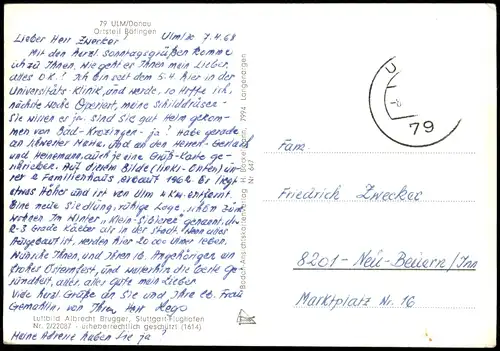 79 ULM/Donau
Ortsteil Böfingen
Lieber Herr Zwecker! Ulm/Do 7.4.68
Mit den herzl. Sonntagsgrüßen komme
ich zu Ihnen. Wie geht es Ihnen mein Lieber,
alles O.K.! Ich bin seit dem 5.4. hier in der
Universitäts-Klinik, und werde, so hoffe ich,
nächste Woche Operiert, meine Schilddrüse-
Sie wissen es ja. Sind Sie gut Heim gekom-
men von Bad-Krozingen - ja! Habe gerade
an Schwester Maria und an den Herren-Gerlach
und Heinemann, auch je eine Gruß-Karte ge-
schrieben. Auf diesem Bilde (links-Unten) un-
ser 2 Familienhaus erbaut 1962. Er liegt
etwas Höher und ist von Ulm 4 Km. entfernt.
Eine neue Siedlung, ruhige Lage, schön zum
wohnen. Im Winter "Klein-Sibirien" genannt, da
2-3 Grade Kälter als in der Stadt. Wenn alles
Ausgebaut ist, werden hier 20 000 leben.
Wünsche Ihnen, und Ihren lb. Angehörigen ein
frohes Osterfest, und weiterhin die beste Ge-
sundheit, alles, alles gute mein Lieber
Viele herzl. Grüße an Sie und Ihre lb. Frau
Gemahlin, von Ihrem
Luftbild Albrecht Brugger, Stuttgart-Flughafen
Nr. 2/22087 - urheberrechtlich geschützt (1614)
Meine Adresse haben Sie ja!
Bodan-Ansichtskartenverlag H. Bockelmann, 7994 Langenargen
79
Fam.
Friedrich Zwecker
8201 - Neu-Beuern/Inn
Marktplatz Nr. 16